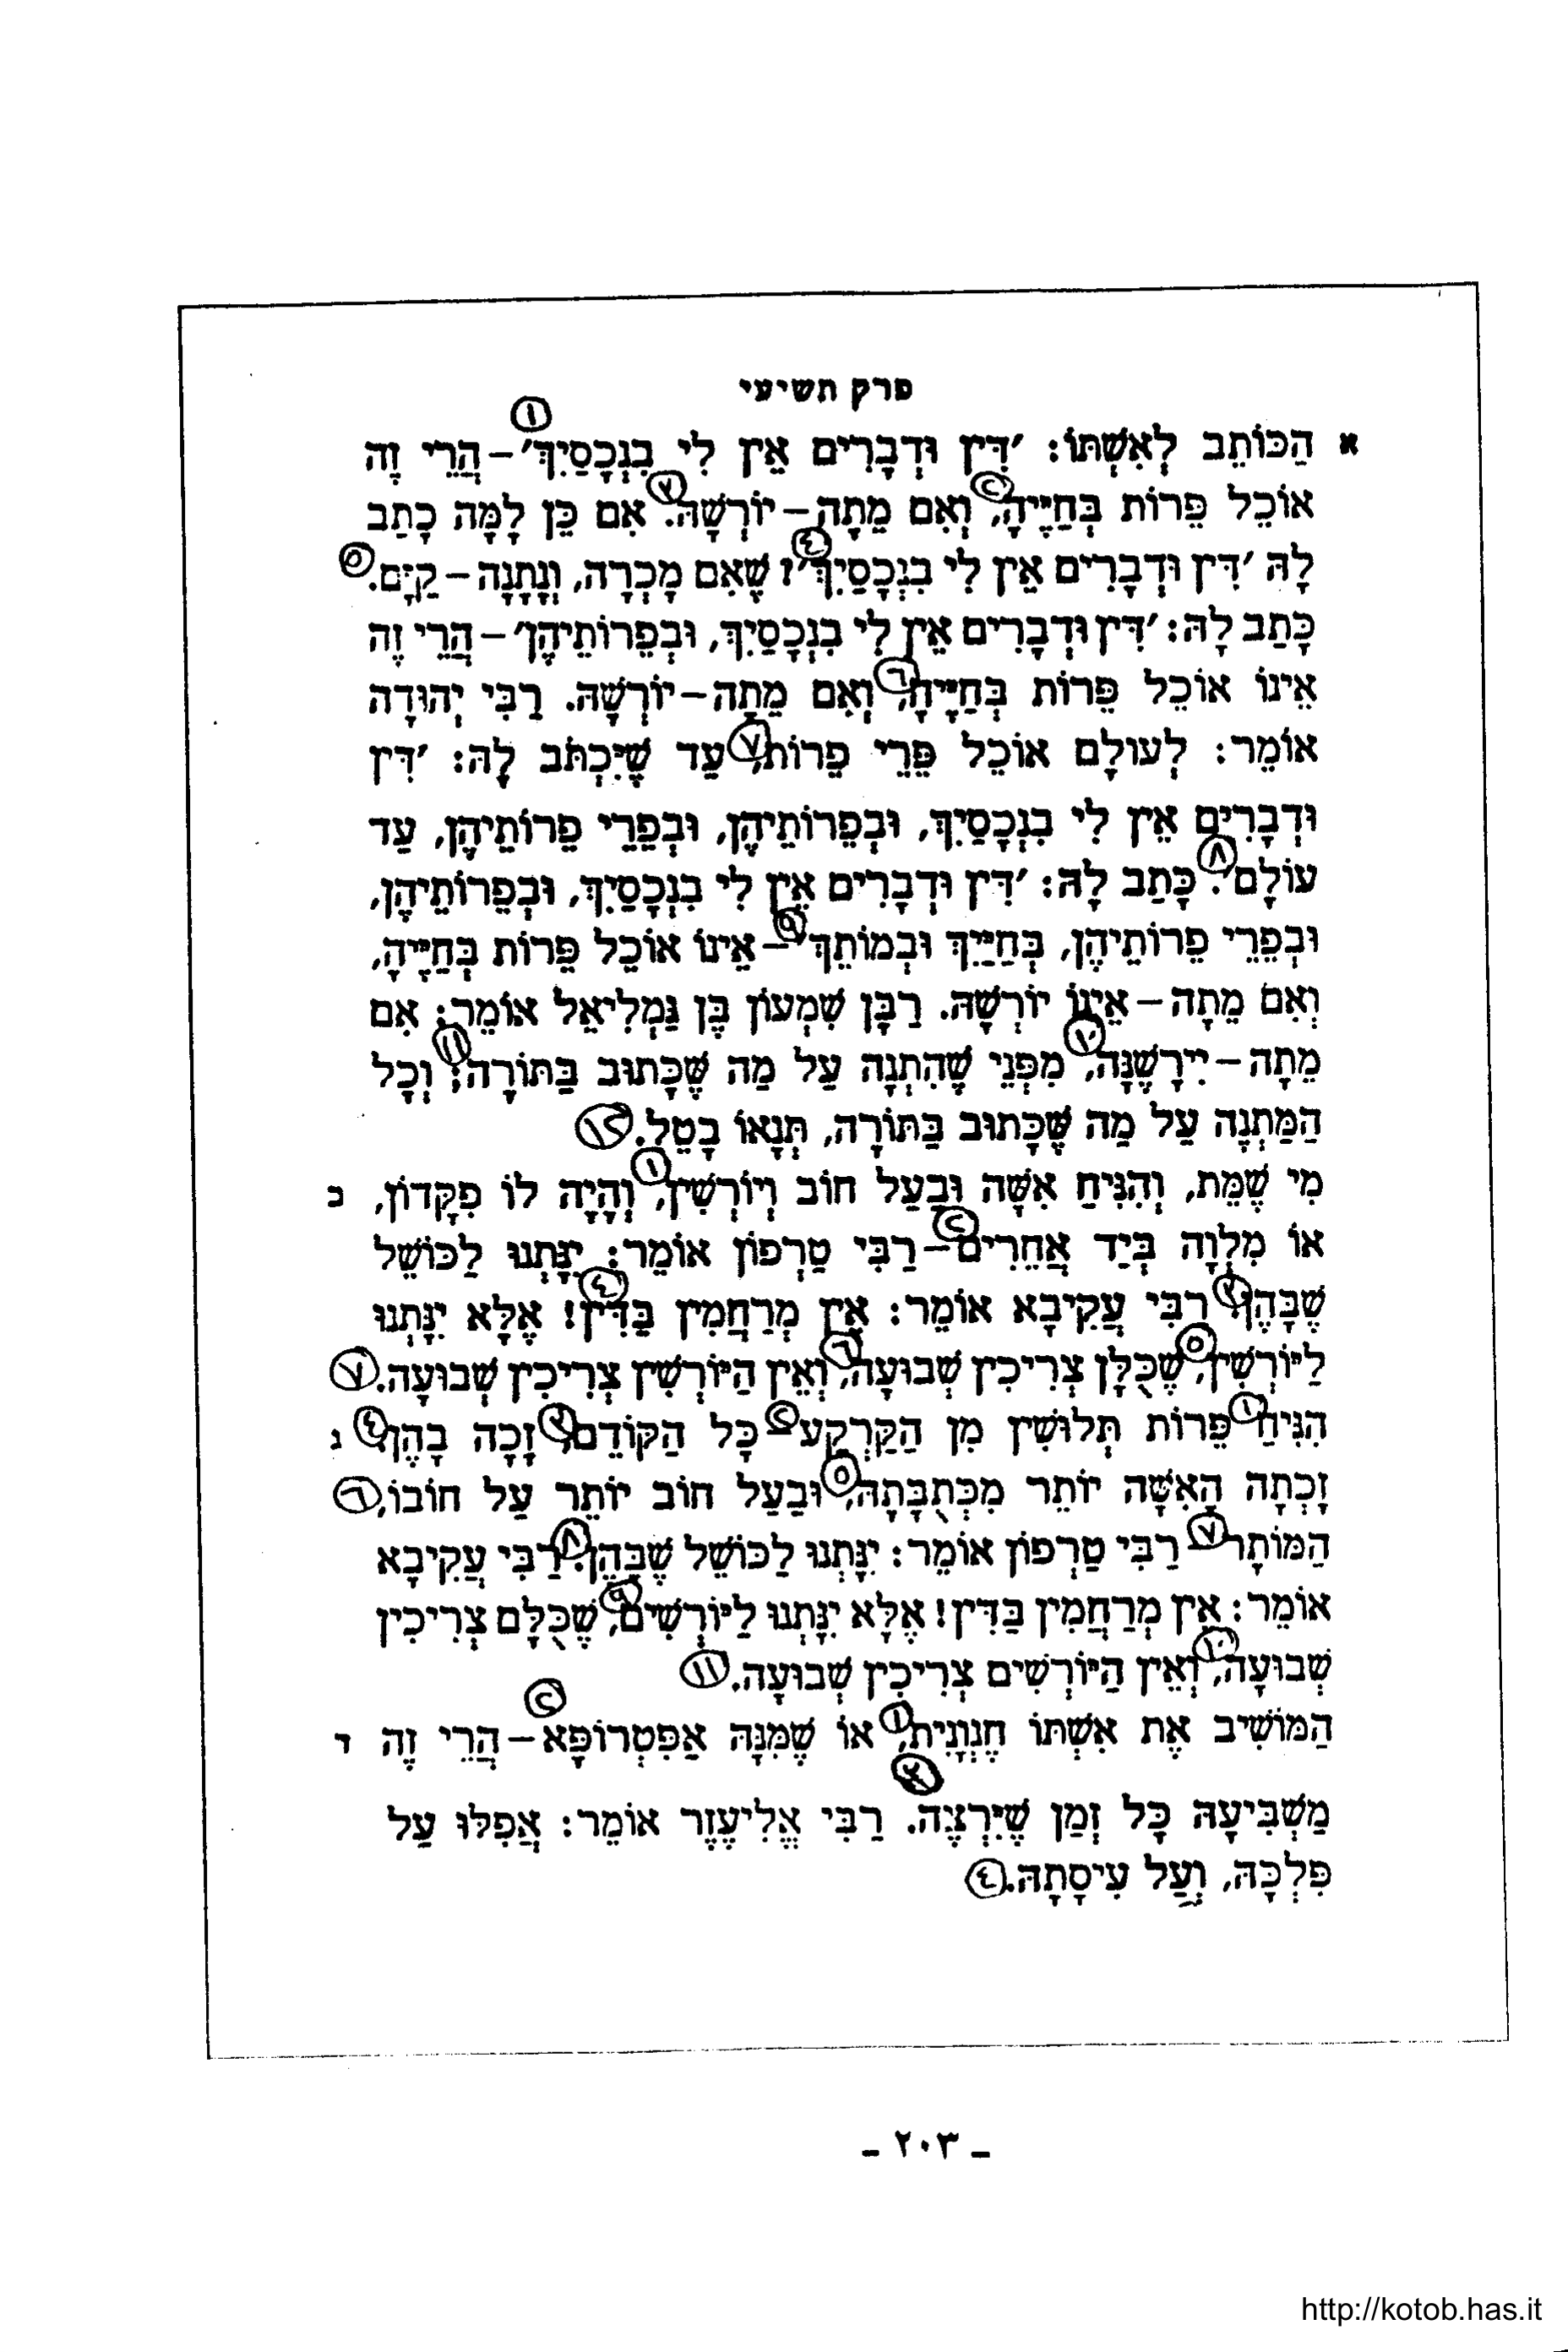 פרק תשיעי
①
א הַכּוֹתֵב לְאִשְׁתּוֹ: ׳דִּין וּדְבָרִים אֵין לִי בִנְכָסַיִךְ׳ – הֲרֵי זֶה
אוֹכֵל פֵּרוֹת בְּחַיֶּיהָ, (٢) וְאִם מֵתָה – יוֹרְשָׁהּ. (٣) אִם כֵּן לָמָּה כָתַב
לָהּ ׳דִּין וּדְבָרִים אֵין לִי בִנְכָסַיִךְ׳? (٤) שֶׁאִם מָכְרָה, וְנָתְנָה – קַיָּם. (٥)
כָּתַב לָהּ: ׳דִּין וּדְבָרִים אֵין לִי בִנְכָסַיִךְ, וּבְפֵרוֹתֵיהֶן׳ – הֲרֵי זֶה
אֵינוֹ אוֹכֵל פֵּרוֹת בְּחַיֶּיהָ, (٦) וְאִם מֵתָה – יוֹרְשָׁהּ. רַבִּי יְהוּדָה
אוֹמֵר: לְעוֹלָם אוֹכֵל פֵּרֵי פֵרוֹת, (٧) עַד שֶׁיִּכְתֹּב לָהּ: ׳דִּין
וּדְבָרִים אֵין לִי בִנְכָסַיִךְ, וּבְפֵרוֹתֵיהֶן, וּבְפֵרֵי פֵרוֹתֵיהֶן, עַד
עוֹלָם׳. (٨) כָּתַב לָהּ: ׳דִּין וּדְבָרִים אֵין לִי בִנְכָסַיִךְ, וּבְפֵרוֹתֵיהֶן,
וּבְפֵרֵי פֵרוֹתֵיהֶן, בְּחַיַּיִךְ וּבְמוֹתֵךְ׳ (٩) – אֵינוֹ אוֹכֵל פֵּרוֹת בְּחַיֶּיהָ,
וְאִם מֵתָה – אֵינוֹ יוֹרְשָׁהּ. רַבָּן שִׁמְעוֹן בֶּן גַּמְלִיאֵל אוֹמֵר: אִם
מֵתָה – יִירָשֶׁנָּה, (١٠) מִפְּנֵי שֶׁהִתְנָה עַל מַה שֶּׁכָּתוּב בַּתּוֹרָה; (١١) וְכָל
הַמַּתְנֶה עַל מַה שֶּׁכָּתוּב בַּתּוֹרָה, תְּנָאוֹ בָטֵל. (١٢)
ב מִי שֶׁמֵּת, וְהִנִּיחַ אִשָּׁה וּבַעַל חוֹב וְיוֹרְשִׁין, (١) וְהָיָה לוֹ פִקָּדוֹן,
אוֹ מִלְוֶה בְּיַד אֲחֵרִים (٢) – רַבִּי טַרְפוֹן אוֹמֵר: יִנָּתְנוּ לַכּוֹשֵׁל
שֶׁבָּהֶן. (٣) רַבִּי עֲקִיבָא אוֹמֵר: אֵין מְרַחֲמִין בַּדִּין! (٤) אֶלָּא יִנָּתְנוּ
לַיּוֹרְשִׁין, (٥) שֶׁכֻּלָּן צְרִיכִין שְׁבוּעָה, (٦) וְאֵין הַיּוֹרְשִׁין צְרִיכִין שְׁבוּעָה. (٧)
ג הִנִּיחַ (١) פֵּרוֹת תְּלוּשִׁין מִן הַקַּרְקַע (٢) – כָּל הַקּוֹדֵם, (٣) זָכָה בָהֶן. (٤)
זָכְתָה הָאִשָּׁה יוֹתֵר מִכְּתֻבָּתָהּ, (٥) וּבַעַל חוֹב יוֹתֵר עַל חוֹבוֹ, (٦)
הַמּוֹתָר (٧) – רַבִּי טַרְפוֹן אוֹמֵר: יִנָּתְנוּ לַכּוֹשֵׁל שֶׁבָּהֶן. (٨) רַבִּי עֲקִיבָא
אוֹמֵר: אֵין מְרַחֲמִין בַּדִּין! אֶלָּא יִנָּתְנוּ לַיּוֹרְשִׁים, (٩) שֶׁכֻּלָּם צְרִיכִין
שְׁבוּעָה, (١٠) וְאֵין הַיּוֹרְשִׁים צְרִיכִין שְׁבוּעָה. (١١)
ד הַמּוֹשִׁיב אֶת אִשְׁתּוֹ חֶנְוָנִית, (١) אוֹ שֶׁמִּנָּהּ אַפִּטְרוֹפָּא (٢) – הֲרֵי זֶה
מַשְׁבִּיעָהּ כָּל זְמַן שֶׁיִּרְצֶה. (٣) רַבִּי אֱלִיעֶזֶר אוֹמֵר: אֲפִלּוּ עַל
פִּלְכָּהּ, וְעַל עִיסָתָהּ. (٤)
– ٢٠٣ –
http://kotob.has.it